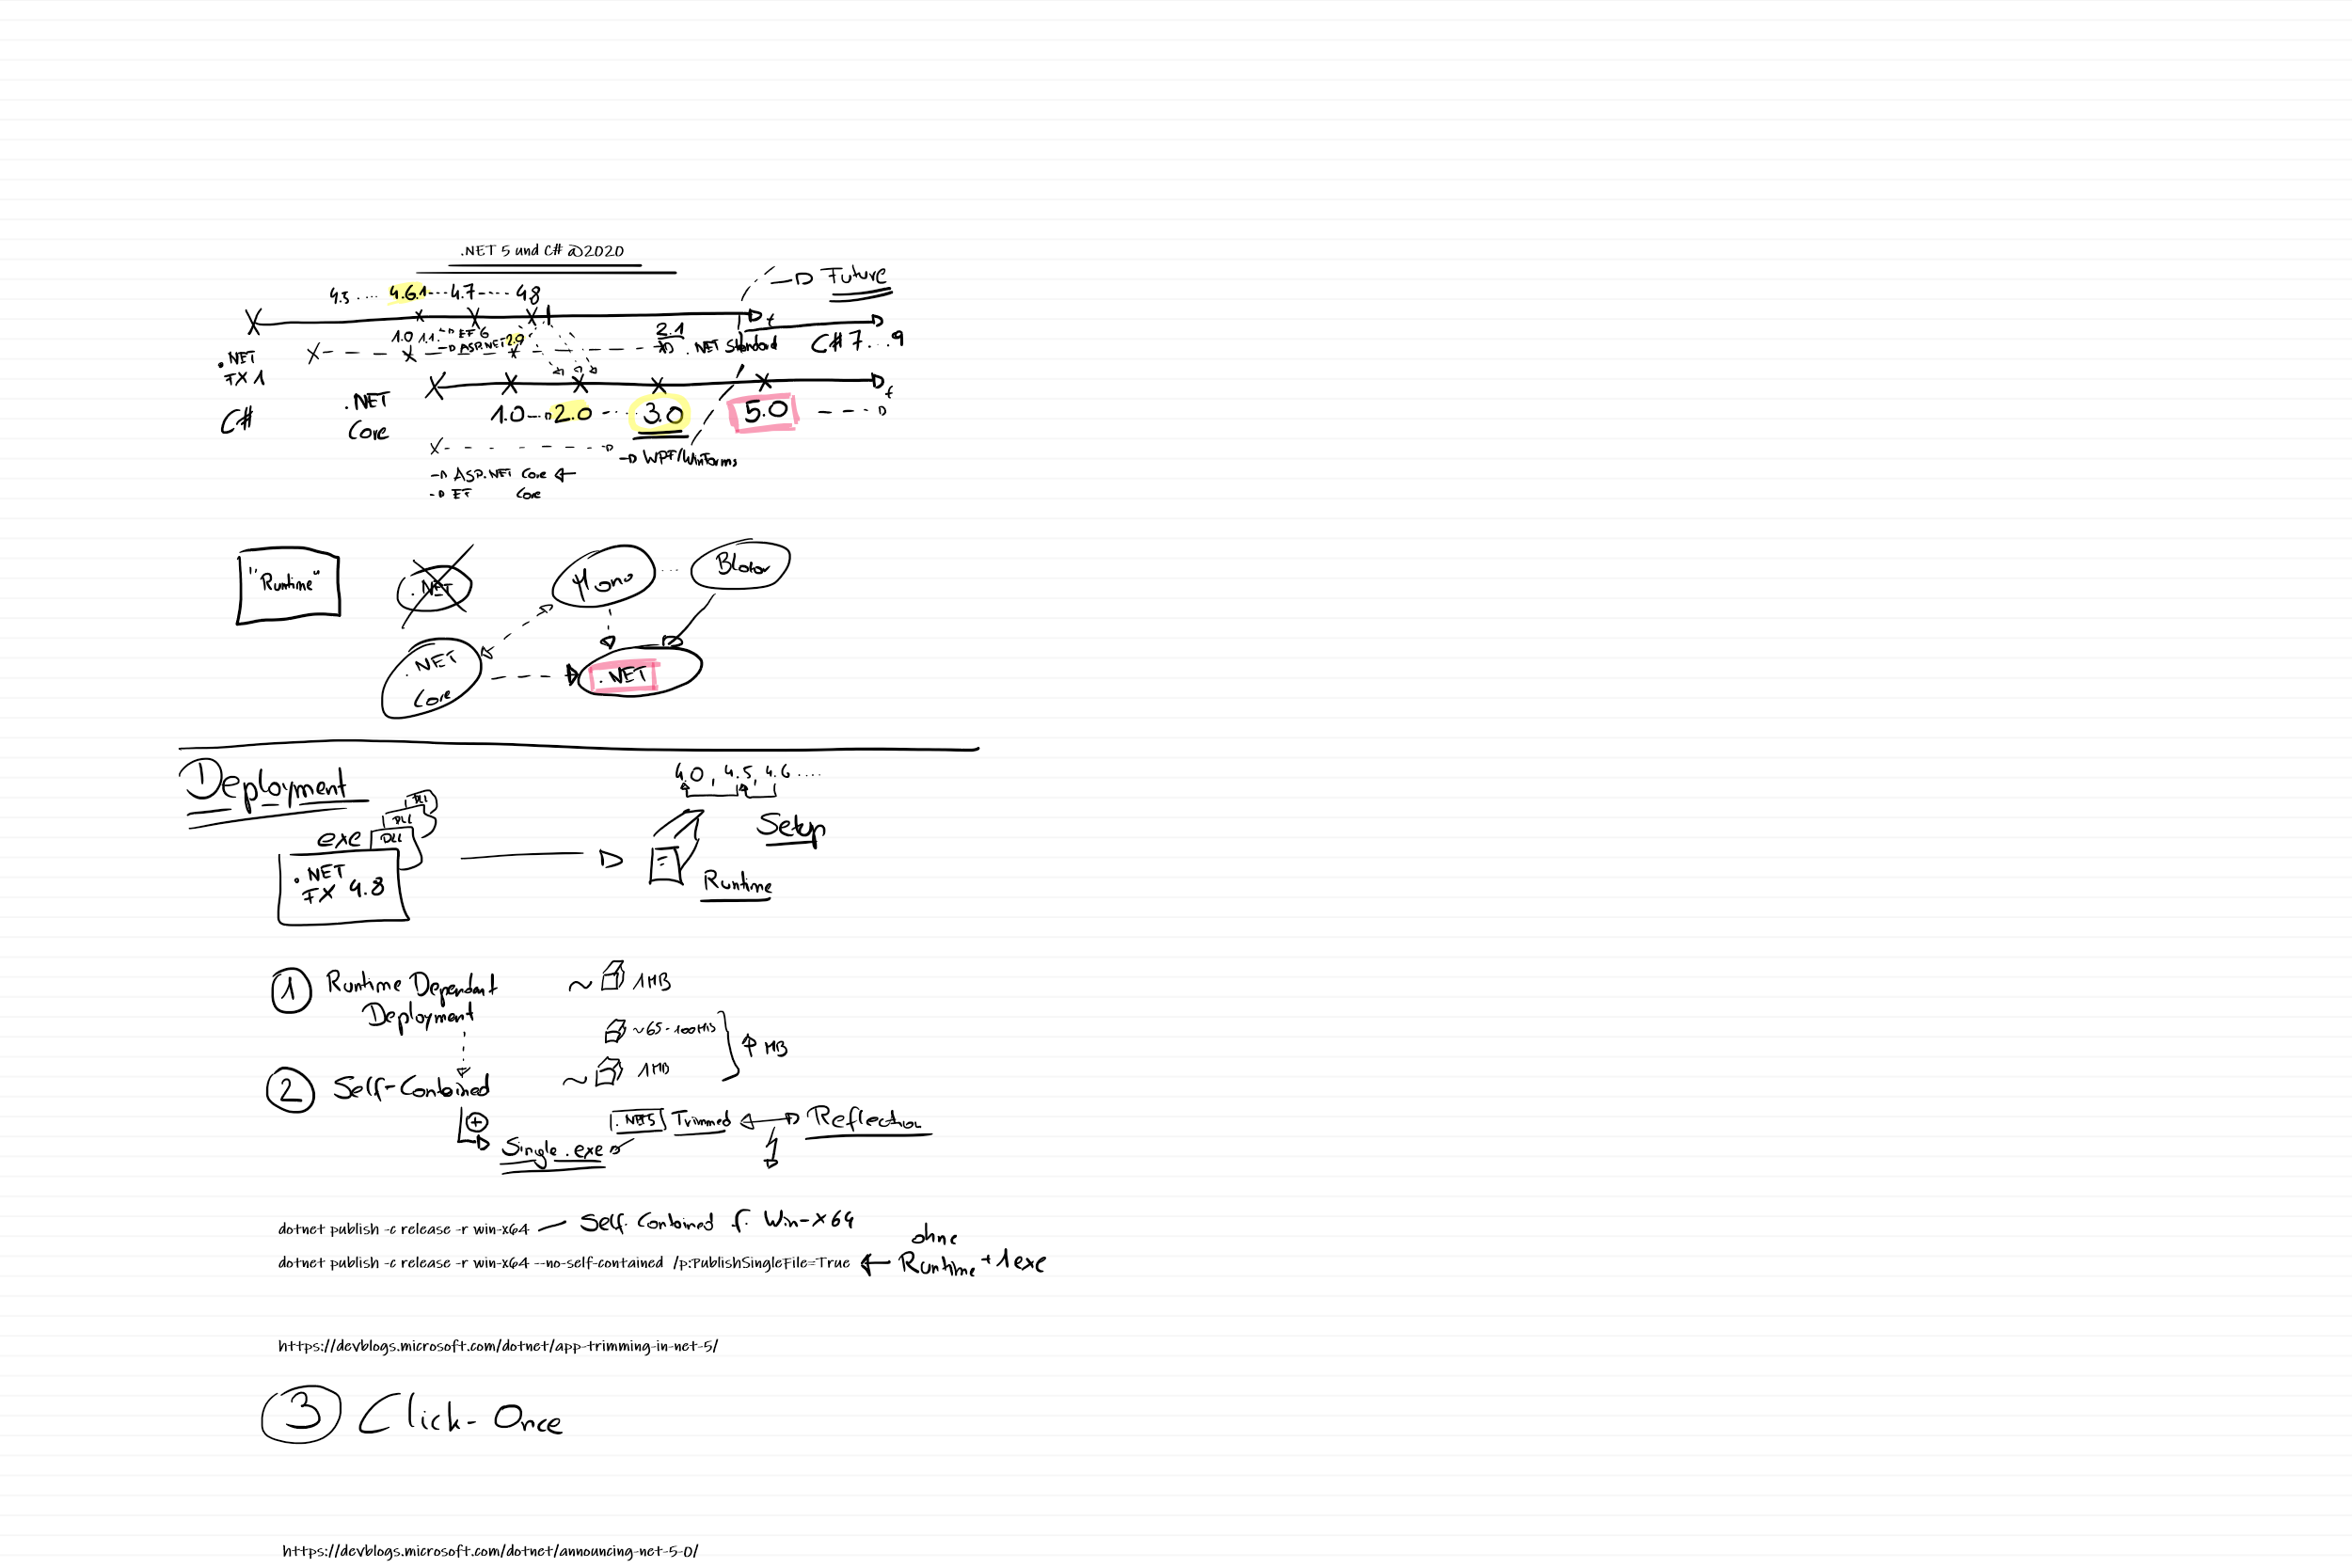 .NET 5 und C# @2020
Future
4.5 .... 4.6.1 --- 4.7 ---- 4.8
t
1.0 1.1. EF 6
ASP.NET 2.0
2.1
.NET Standard
C# 7...9
.NET
FX 1
C#
.NET
Core
t
1.0 -- 2.0 --- 3.0
5.0
WPF/WinForms
ASP.NET Core
EF Core
"Runtime"
.NET
Mono
...
Blazor
.NET
Core
.NET
Deployment
4.0, 4.5, 4.6 ....
DLL
DLL
exe DLL
.NET
FX 4.8
Setup
Runtime
1 Runtime Dependant
Deployment
~ 1MB
~65-100MB
MB
~ 1MB
2 Self-Contained
+
Single.exe
.NET5 Trimmed
Reflection
dotnet publish -c release -r win-x64 — Self. Contained f. Win-x64
dotnet publish -c release -r win-x64 --no-self-contained /p:PublishSingleFile=True
ohne
Runtime + 1 exe
https://devblogs.microsoft.com/dotnet/app-trimming-in-net-5/
3 Click-Once
https://devblogs.microsoft.com/dotnet/announcing-net-5-0/